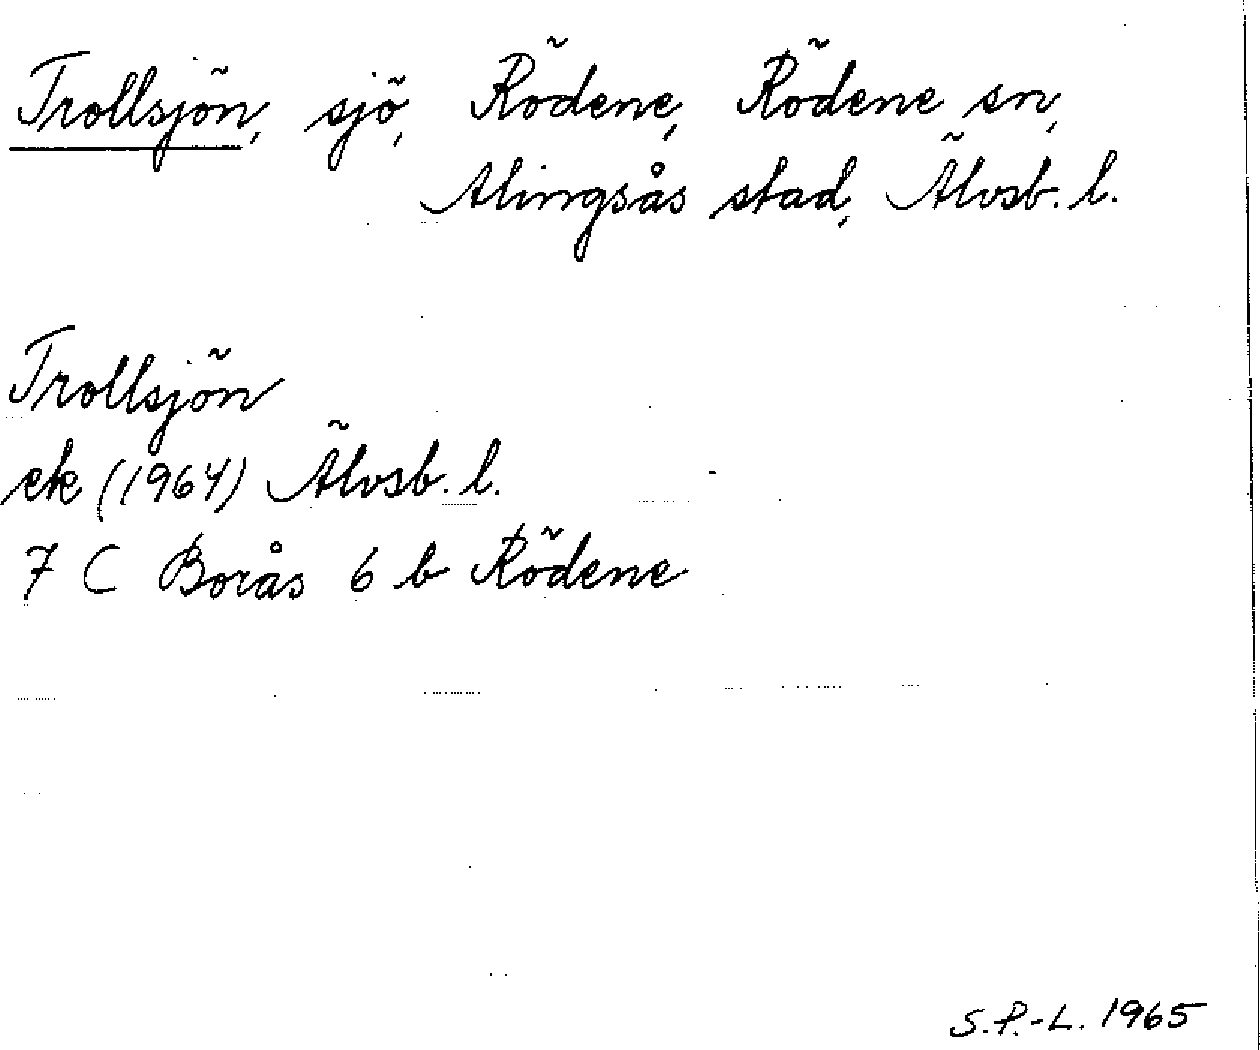 Trollsjön, sjö, Rödene, Rödene sn,
Alingsås stad, Älvsb. l.
Trollsjön
ek (1964) Älvsb. l.
7 C Borås 6 b Rödene
S.P.-L. 1965